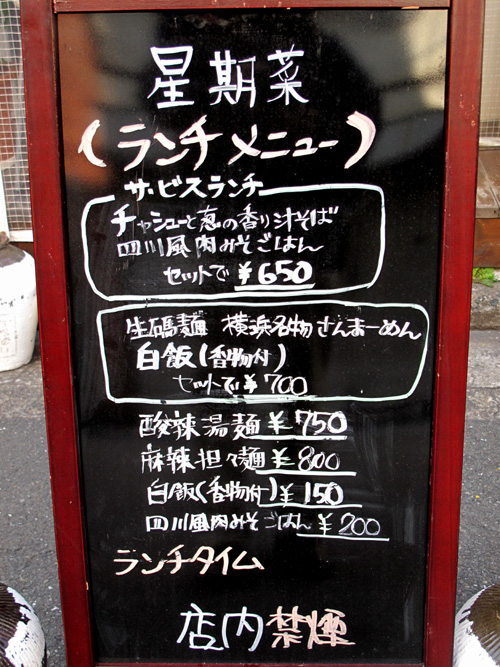 星期菜
(ランチメニュー)
サービスランチ
チャシューと葱の香り汁そば
四川風肉みそごはん
セットで ¥650
生碼麺 横浜名物さんまーめん
白飯(香物付)
セットで ¥700
酸辣湯麺 ¥750
麻辣担々麺 ¥800
白飯(香物付) ¥150
四川風肉みそごはん ¥200
ランチタイム
店内禁煙